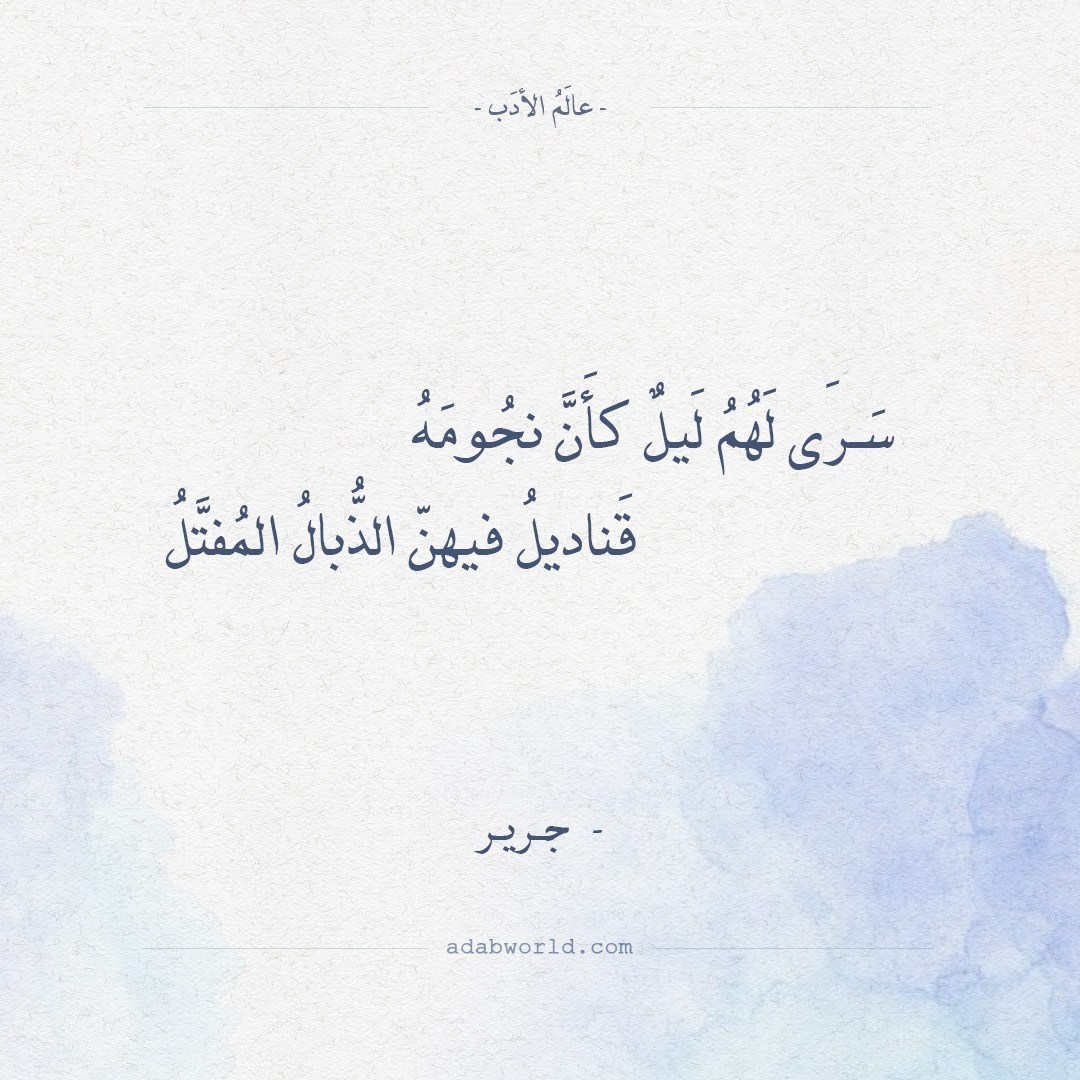 - عالَمُ الأدَب -
سَرَى لَهُمُ لَيلٌ كأَنَّ نجُومَهُ
قَناديلُ فيهنّ الذُّبالُ المُفتَّلُ
- جرير
adabworld.com